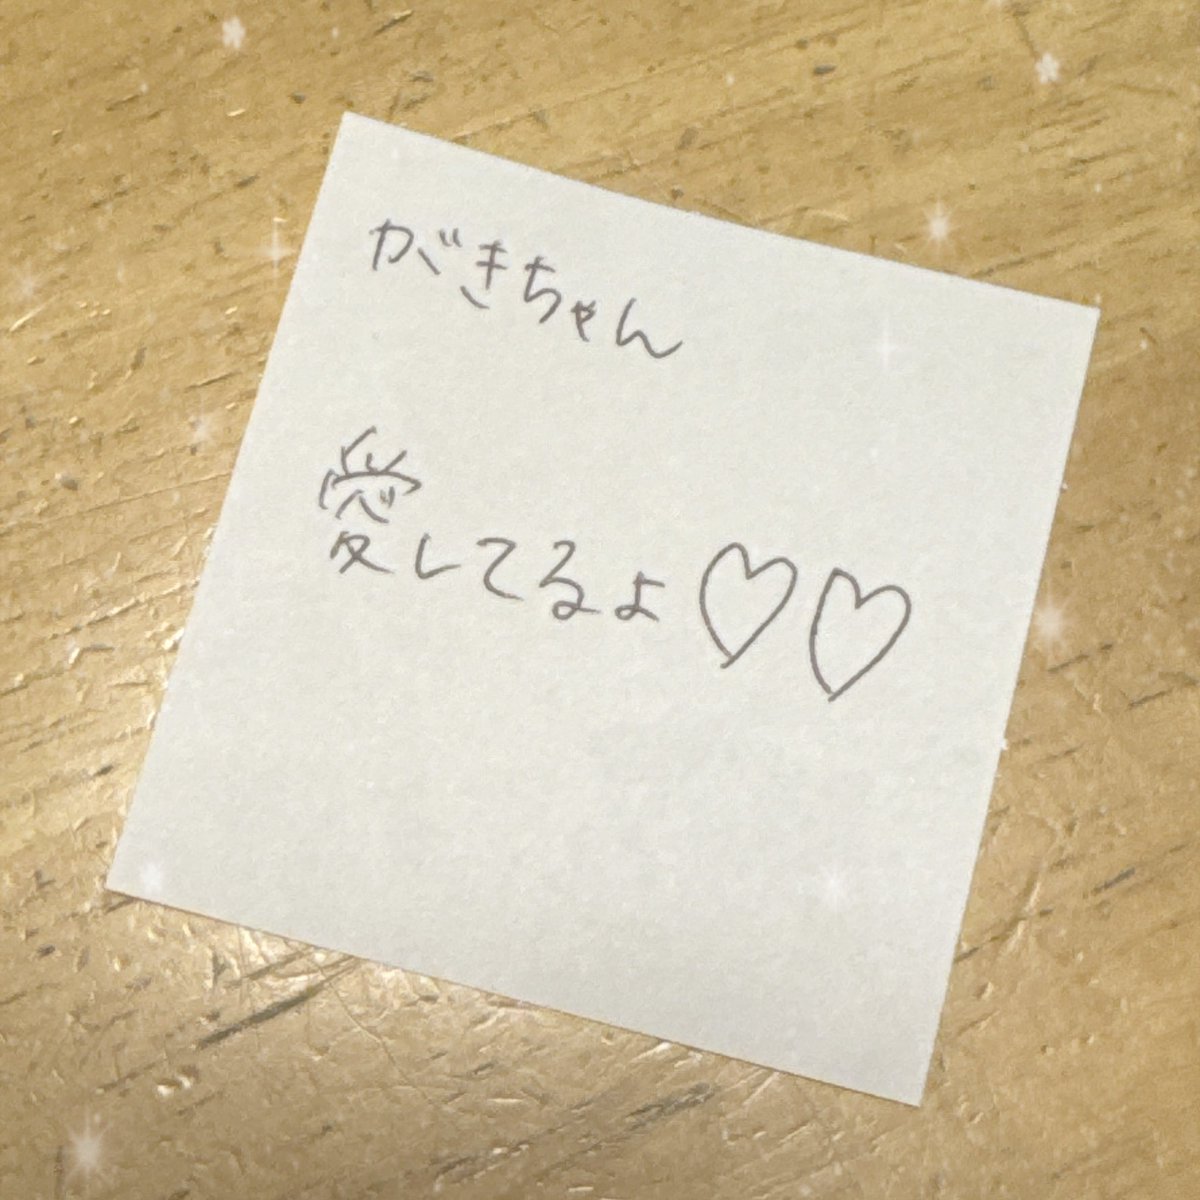 がきちゃん
愛してるよ♡♡